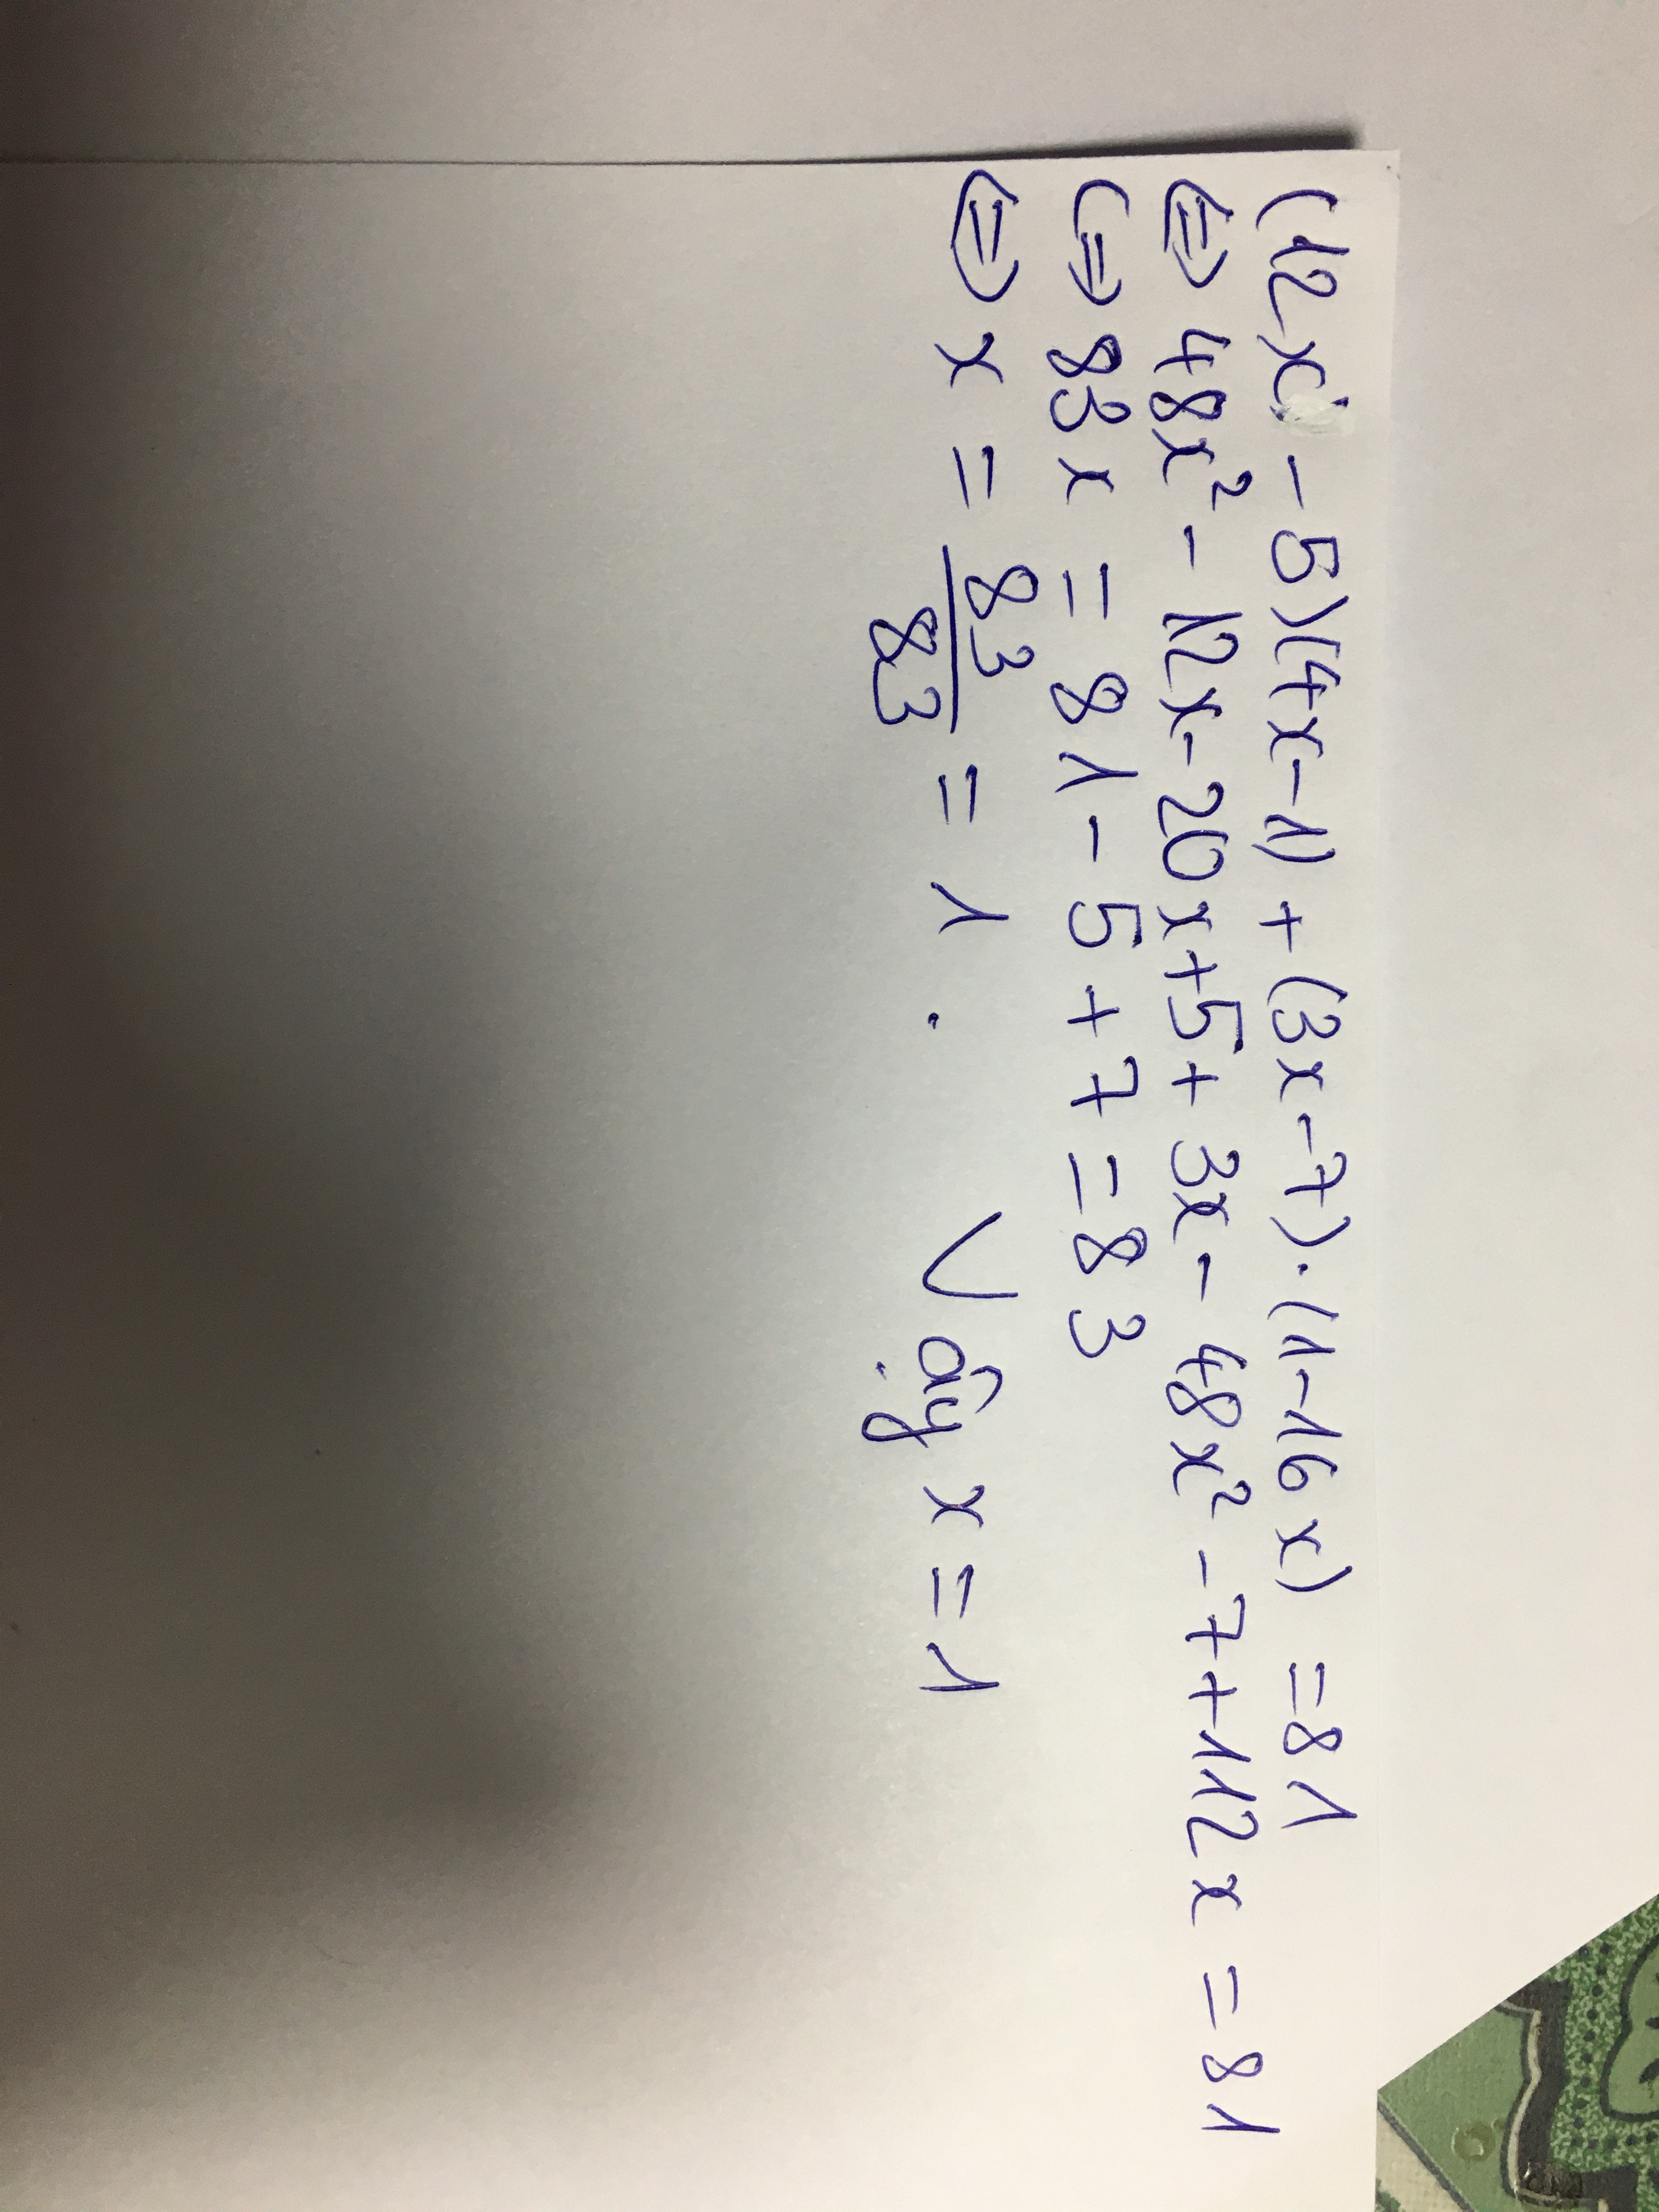 (12x - 5)(4x-1) + (3x-7).(1-16x) = 81
⇔ 48x² - 12x - 20x + 5 + 3x - 48x² - 7 + 112x = 81
⇔ 83x = 81 - 5 + 7 = 83
⇔ x = 83/83 = 1. Vậy x = 1